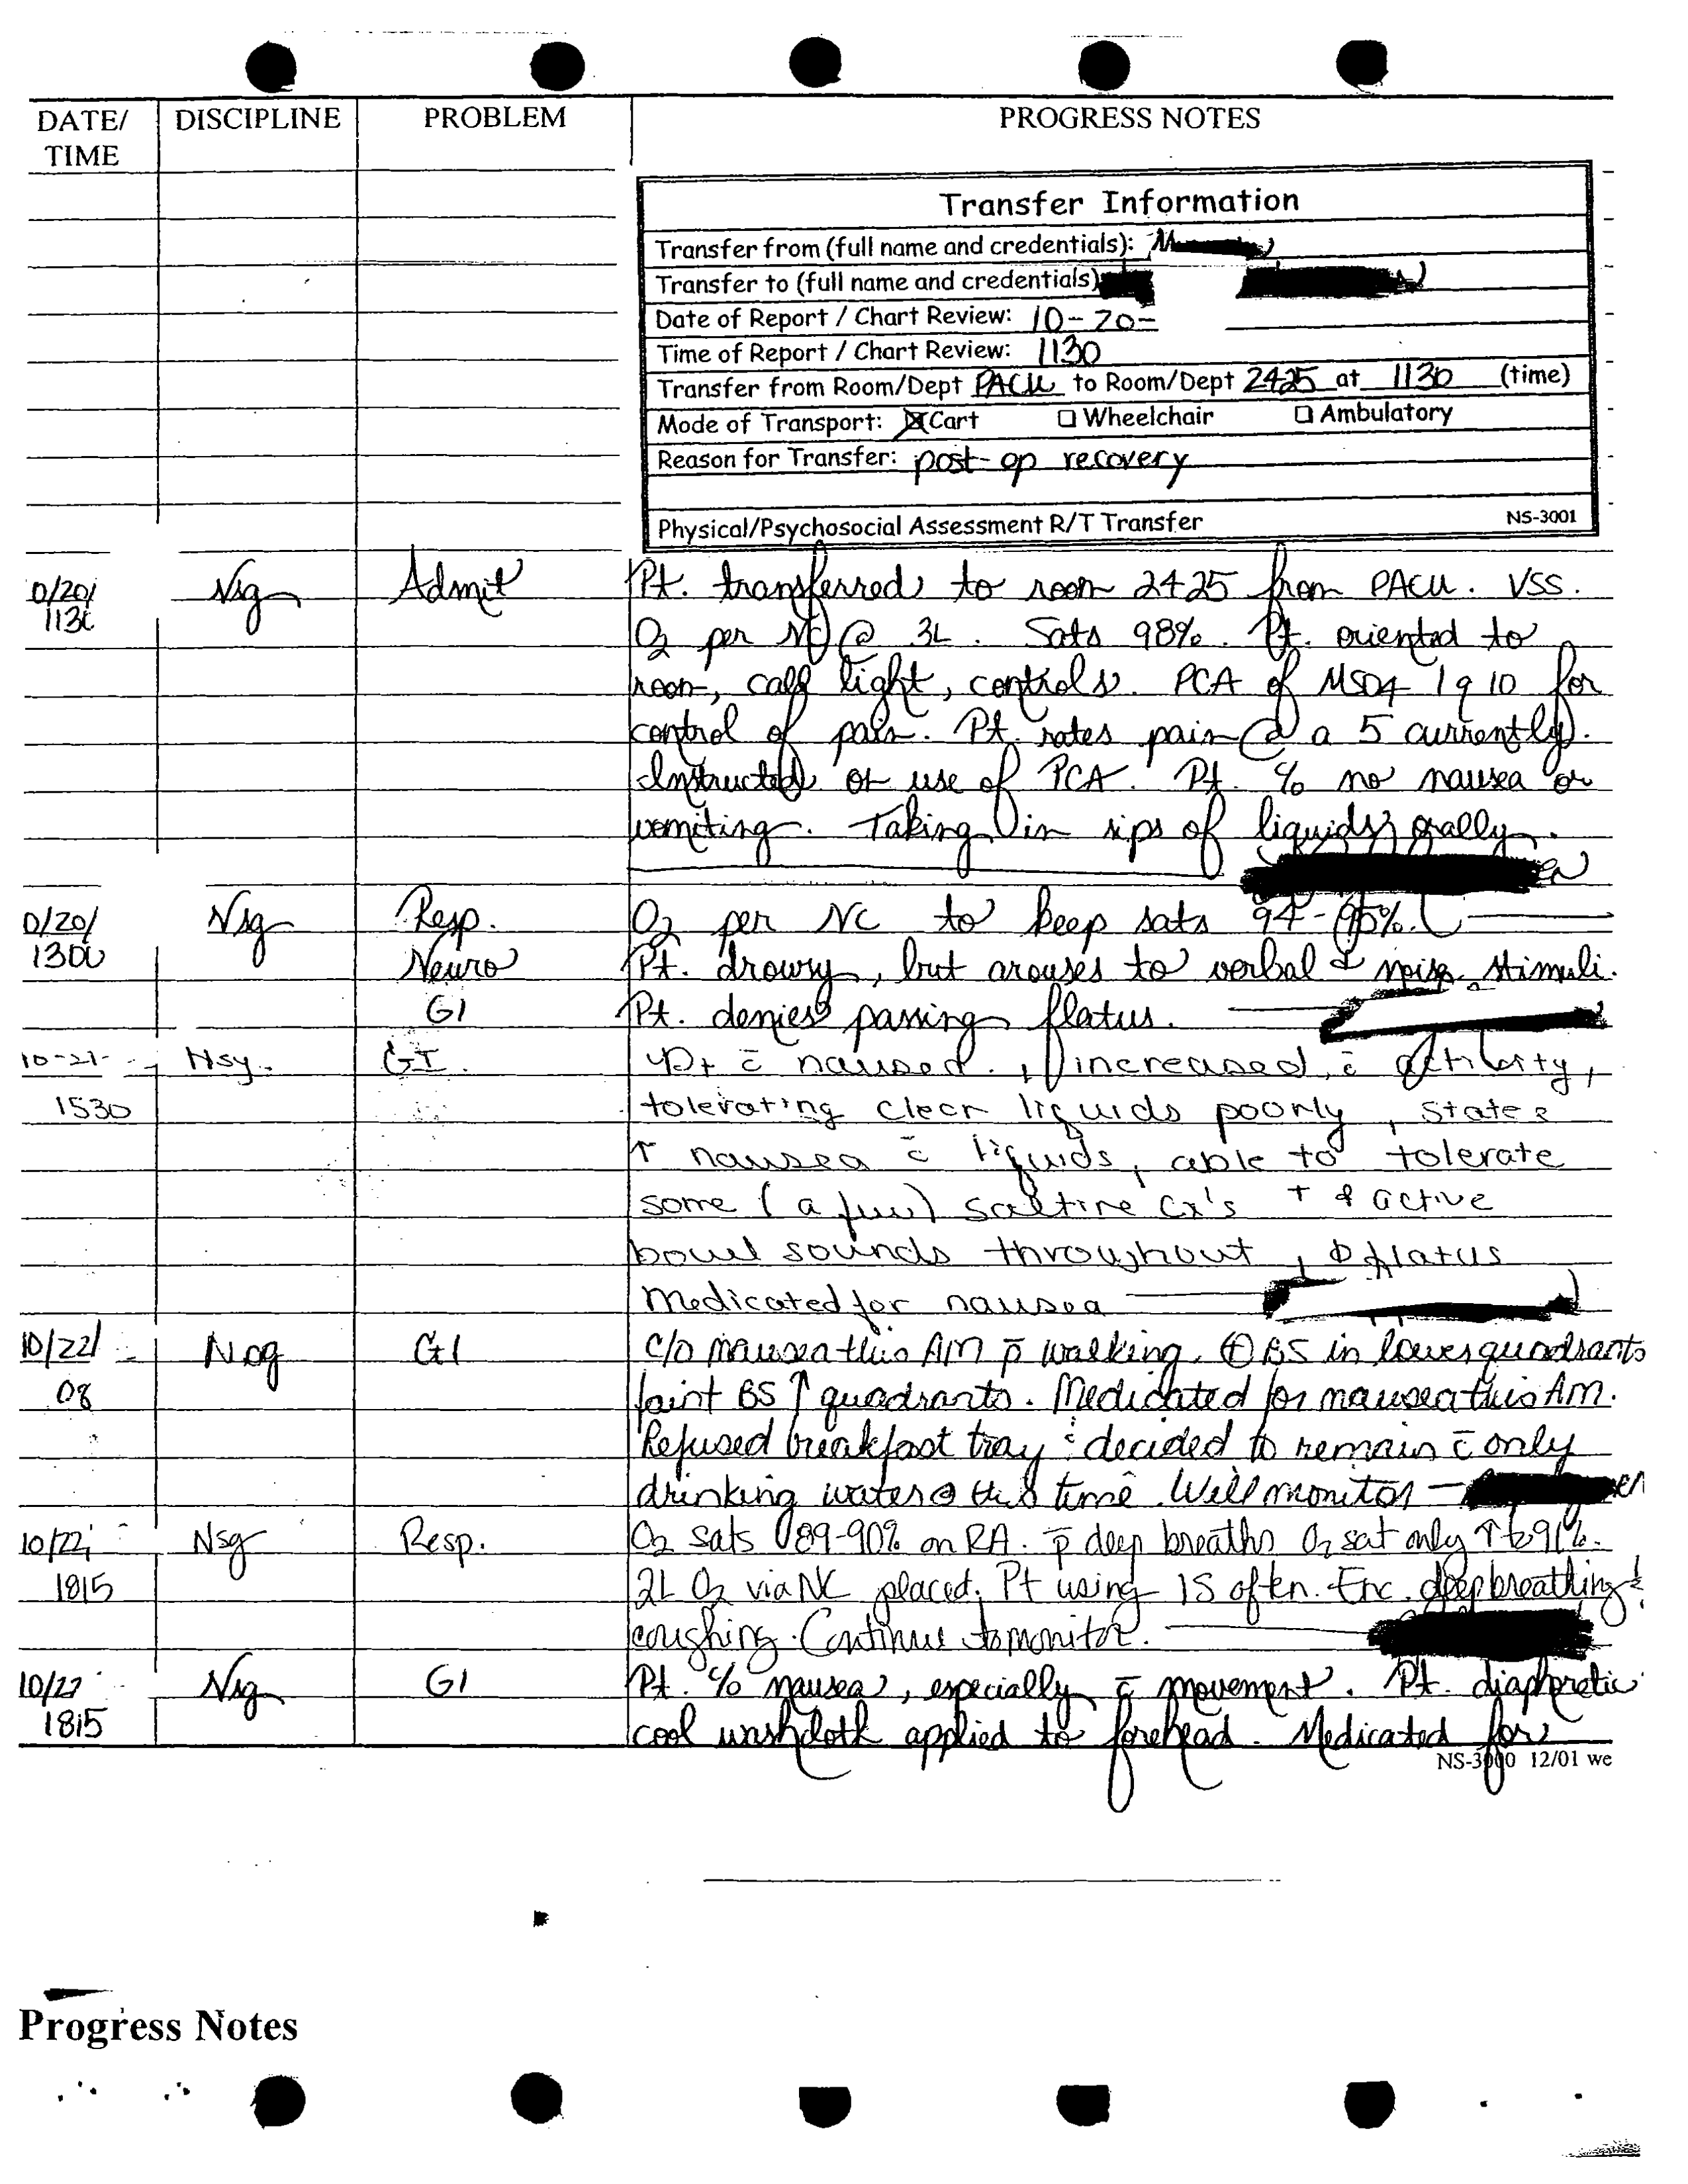 DATE/ TIME DISCIPLINE PROBLEM PROGRESS NOTES
Transfer Information
Transfer from (full name and credentials):
Transfer to (full name and credentials)
Date of Report / Chart Review: 10-20-
Time of Report / Chart Review: 1130
Transfer from Room/Dept PACU to Room/Dept 2425 at 1130 (time)
Mode of Transport: ☒ Cart ☐ Wheelchair ☐ Ambulatory
Reason for Transfer: post-op recovery
Physical/Psychosocial Assessment R/T Transfer NS-3001
0/20/ Nsg Admit Pt. transferred to room 2425 from PACU. VSS.
113 O2 per NC @ 3L. Sats 98%. Pt. oriented to
room, call light, controls. PCA of MSO4 1 q 10 for
control of pain. Pt. rates pain @ a 5 currently.
Instructed on use of PCA. Pt. c/o no nausea or
vomiting. Taking in sips of liquids orally.
0/20/ Nsg Resp. O2 per NC to keep sats 94-95%.
1300 Neuro Pt. drowsy, but arouses to verbal & stimuli.
GI Pt. denies passing flatus.
10-21- Nsg. GI Pt c̄ nausea, increased c̄ activity,
1530 tolerating clear liquids poorly, states
↑ nausea c̄ liquids, able to tolerate
some (a few) saltine cx's + active
bowel sounds throughout, flatus
Medicated for nausea
10/22/ Nsg GI c/o nausea this AM p̄ walking. ⊕ BS in lower quadrants
08 faint BS ↑ quadrants. Medicated for nausea this AM.
Refused breakfast tray & decided to remain c̄ only
drinking water @ this time. Will monitor
10/22/ Nsg Resp. O2 sats 89-90% on RA. p̄ deep breaths O2 sat only ↑ to 91%.
1815 2L O2 via NC placed. Pt using IS often. Enc. deep breathing &
coughing. Continue to monitor.
10/22 Nsg GI Pt. c/o nausea, especially c̄ movement. Pt. diaphoretic
1815 cool washcloth applied to forehead. Medicated for
NS-3000 12/01 we
Progress Notes